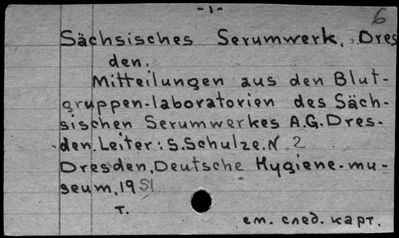 -1-
6
Sächsisches Serumwerk, Dres
den.
Mitteilungen aus den Blut-
gruppen-laboratorien des Säch-
sischen Serumwerkes A.G. Dres-
den. Leiter: S. Schulze. N 2
Dresden, Deutsche Hygiene-mu-
seum, 1951
т.
см. след. карт.